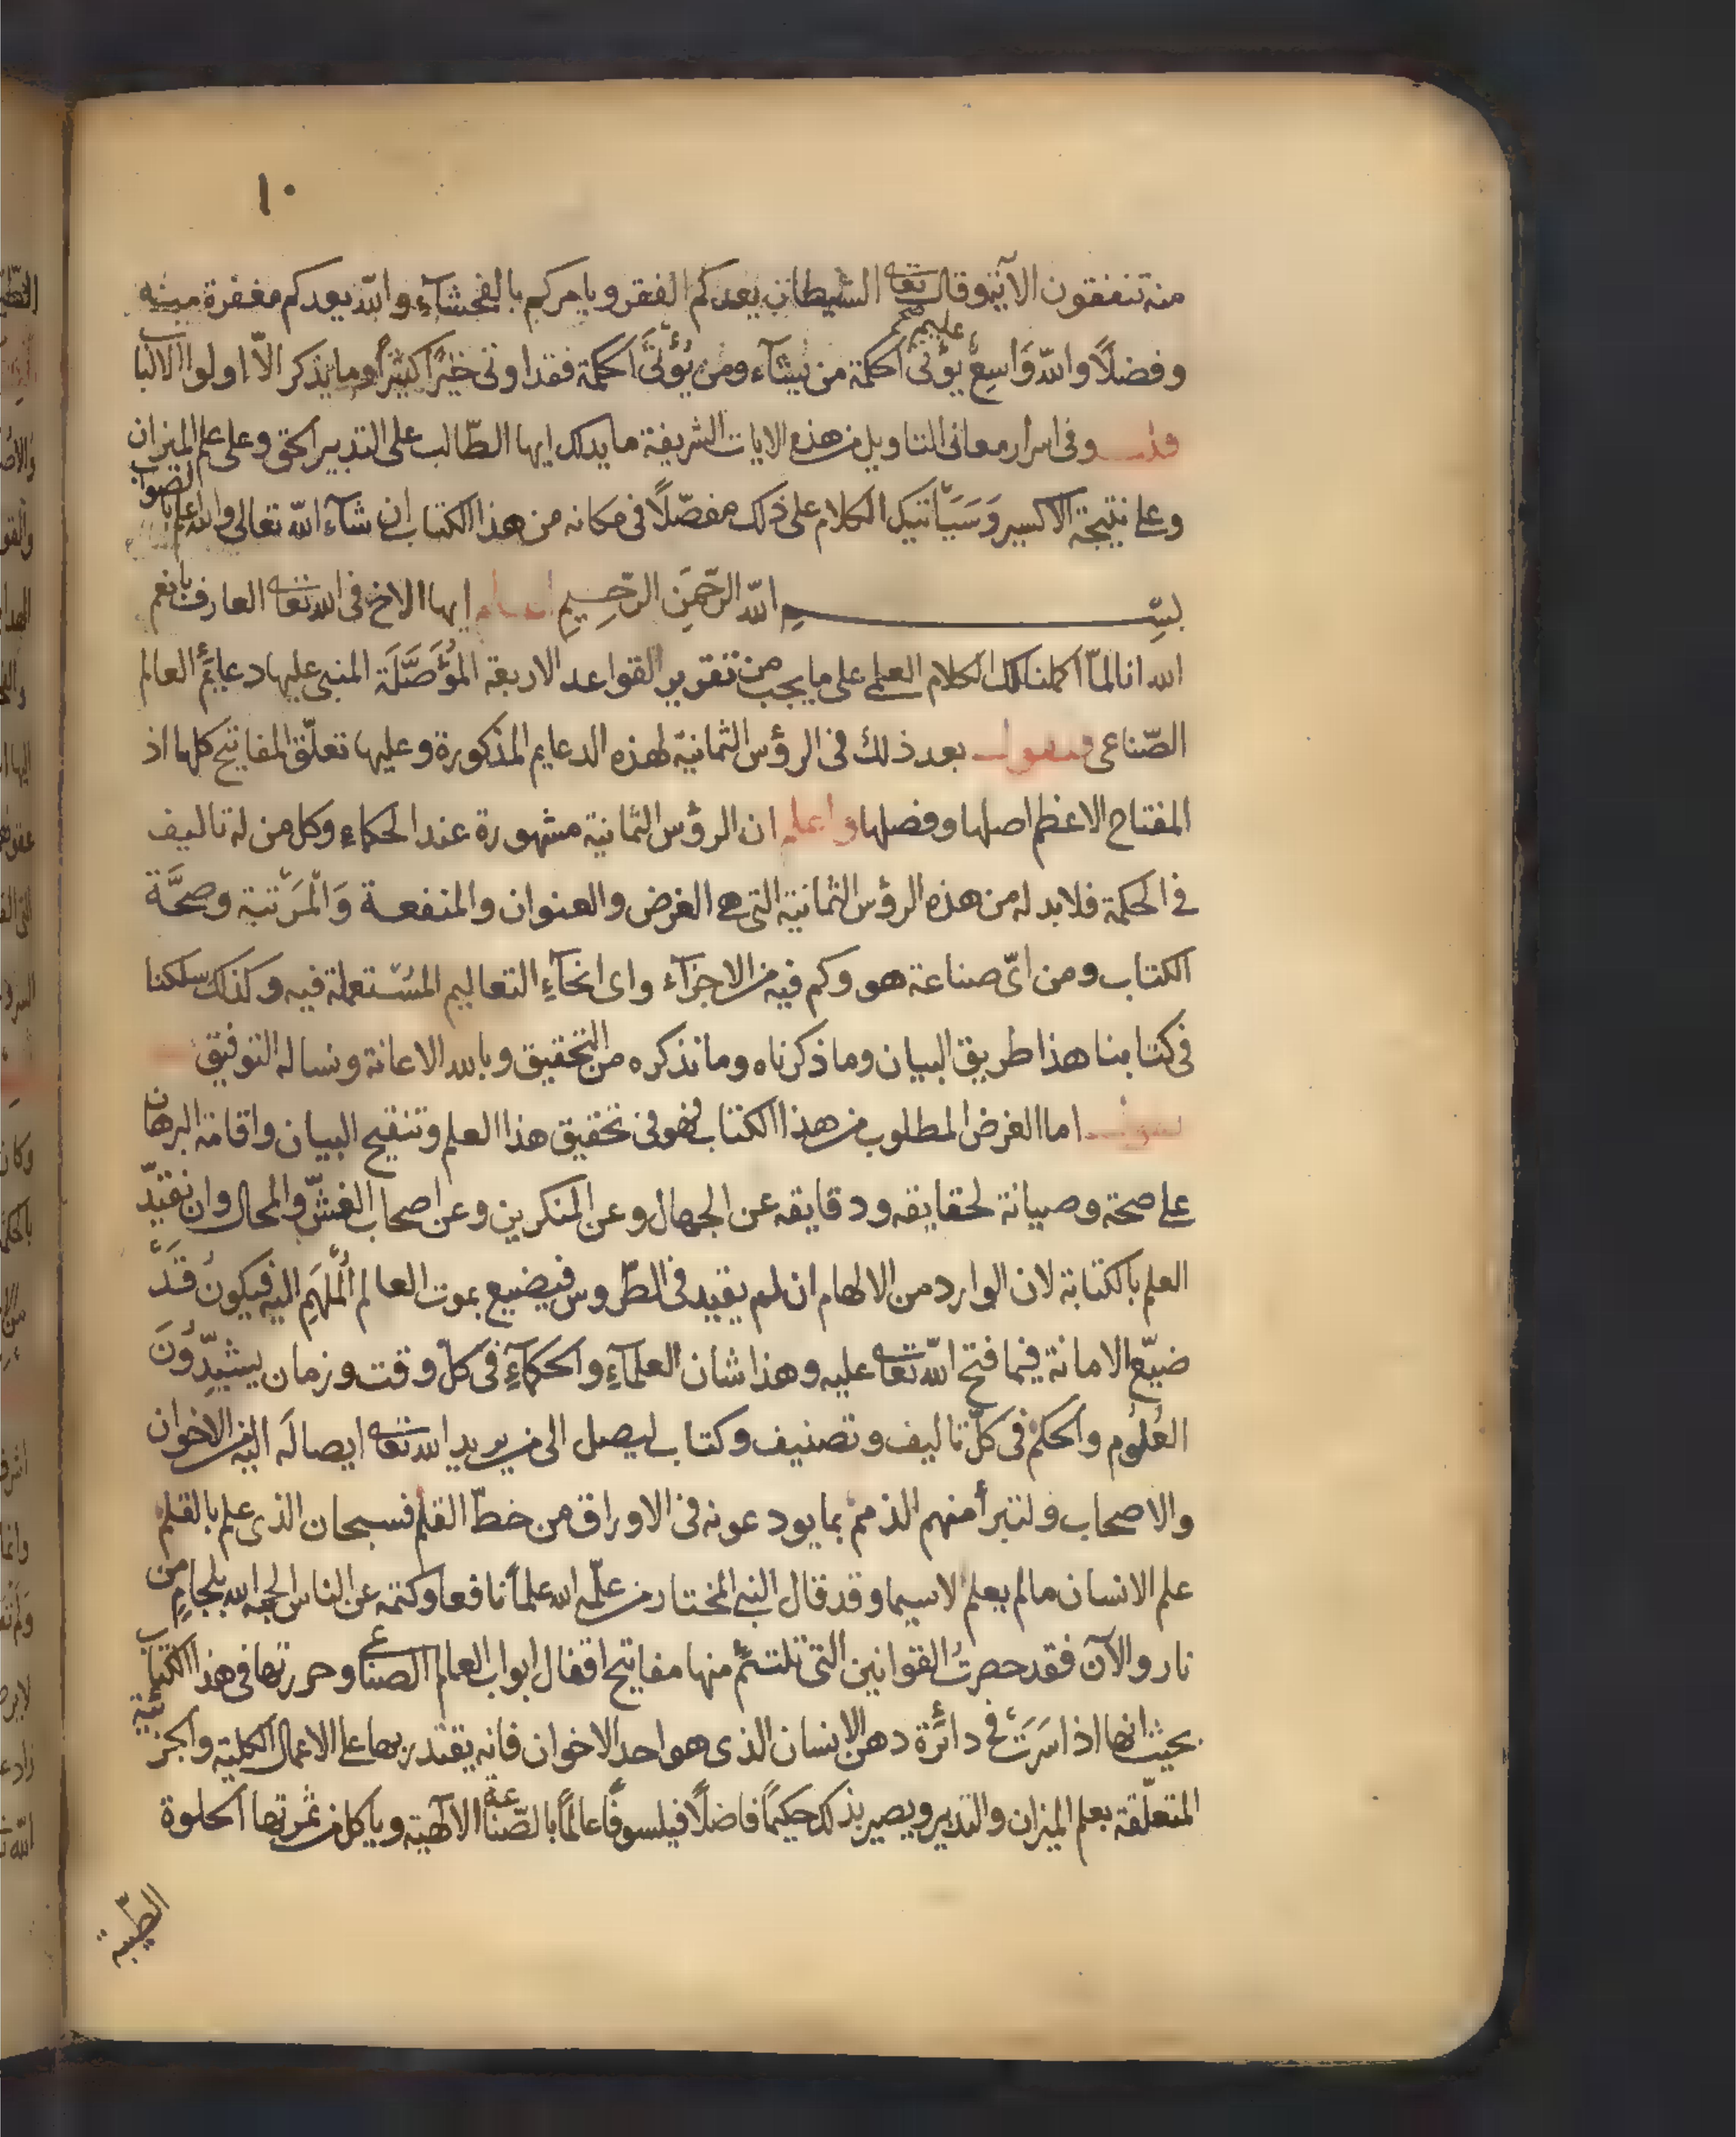 ١٠
منه تنفقون الآية وقال تعا الشيطان يعدكم الفقر ويامركم بالفحشآء والله يعدكم مغفرة منه
وفضلًا والله وَاسِعٌ عليم يؤتى الحكمة من يشآء ومن يُؤْتَى الحكمة فقد اوتى خيرًا كثيرًا وما يذكر الّا اولوا الالباب
وفى اسرار معانى التاويل من هذه الايات الشريفة ما يدلك ايها الطّالب على التدبير الحق وعلى علم الميزان
وعلى نتيجة الاكسير وَسَيَأتيك الكلام على ذلك مفصّلًا فى مكانه من هذا الكتاب ان شآء الله تعالى والله اعلم بالصواب
بسْمِ الله الرّحمَنِ الرّحِيمِ ايها الاخ فى الله تعا العارف بانعم
الله انا لمّا اكملنا لك الكلام العلمى على ما يجب من تقرير القواعد الاربعة المُؤَصَّلَة المنبى عليها دعايم العالم
الصّناعى فنقول بعد ذلك فى الرؤس الثمانية لهذه الدعايم المذكورة وعليها تعلّق المفاتيح كلها اذ
المفتاح الاعظم اصلها وفضلها واعلم ان الرؤس الثمانية مشهورة عند الحكماء وكل من له تاليف
فى الحكمة فلا بد له من هذه الرؤس الثمانية التى هى الغرض والعنوان والمنفعة وَالْمَرْتبة وصحَّة
الكتاب ومن اىّ صناعة هو وكم فيه من الاجزآء واى انحآءِ التعاليم المُسْتعملة فيه وكذلك سلكنا
فى كتابنا هذا طريق البيان وما ذكرناه وما نذكره من التحقيق وبالله الاعانة ونساله التوفيق
فنقول اما الغرض المطلوب من هذا الكتاب فهو فى تحقيق هذا العلم وتنقيح البيان واقامة البرهان
على صحته وصيانة لحقايقه ودقايقه عن الجهال وعن المنكرين وعن اصحاب الغشّ والمحال وان نقيّد
العلم بالكتابة لان الوارد من الالهام ان لم يقيد فى الطّروس فيضيع بموت العالم المُلْهَمِ اليه فيكونُ قَدْ
ضيّع الامانة فيما فتح الله تعا عليه وهذا شان العلمآءِ والحكمآءِ فى كلّ وقت وزمان يشيدُّونَ
العُلُوم والحكم فى كلّ تاليف وتصنيف وكتاب ليصل الى من يريد الله تعا ايصالَه اليه من الاخوان
والاصحاب ولتبرأ منهم الذمم بما يودعونه فى الاوراق من خطّ القلم فسبحان الذى علم بالقلم
علم الانسان ما لم يعلم لا سيما وقد قال النبى المختار من علّمه الله علماً نافعا وكتمه عن الناس الجمه الله بلجامٍ من
نار والآن فقد حصرتُ القوانين التى تلتئمُ منها مفاتيح اقفال ابواب العالم الصناعى وحررتها فى هذا الكتاب
بحيث انها اذا سَرَتْ فى دائرة ذهن الانسان الذى هو احد الاخوان فانه يقتدر بها على الاعمال الكلية والجزئية
المتعلّقة بعلم الميزان والتدبير ويصير بذلك حكيمًا فاضلًا فيلسوفًا عالمًا بالصّناعة الالهّية وياكل من ثمرتها الحلوة
الطّيبة